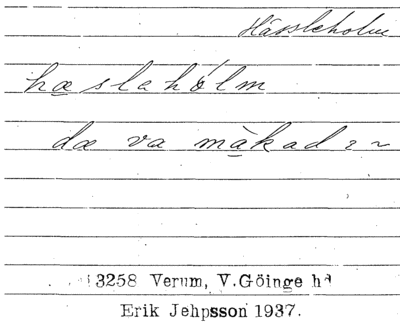 Hässleholm
hæslahólm
dæ va màkad
3258 Verum, V.Göinge hd
Erik Jehpsson 1937.